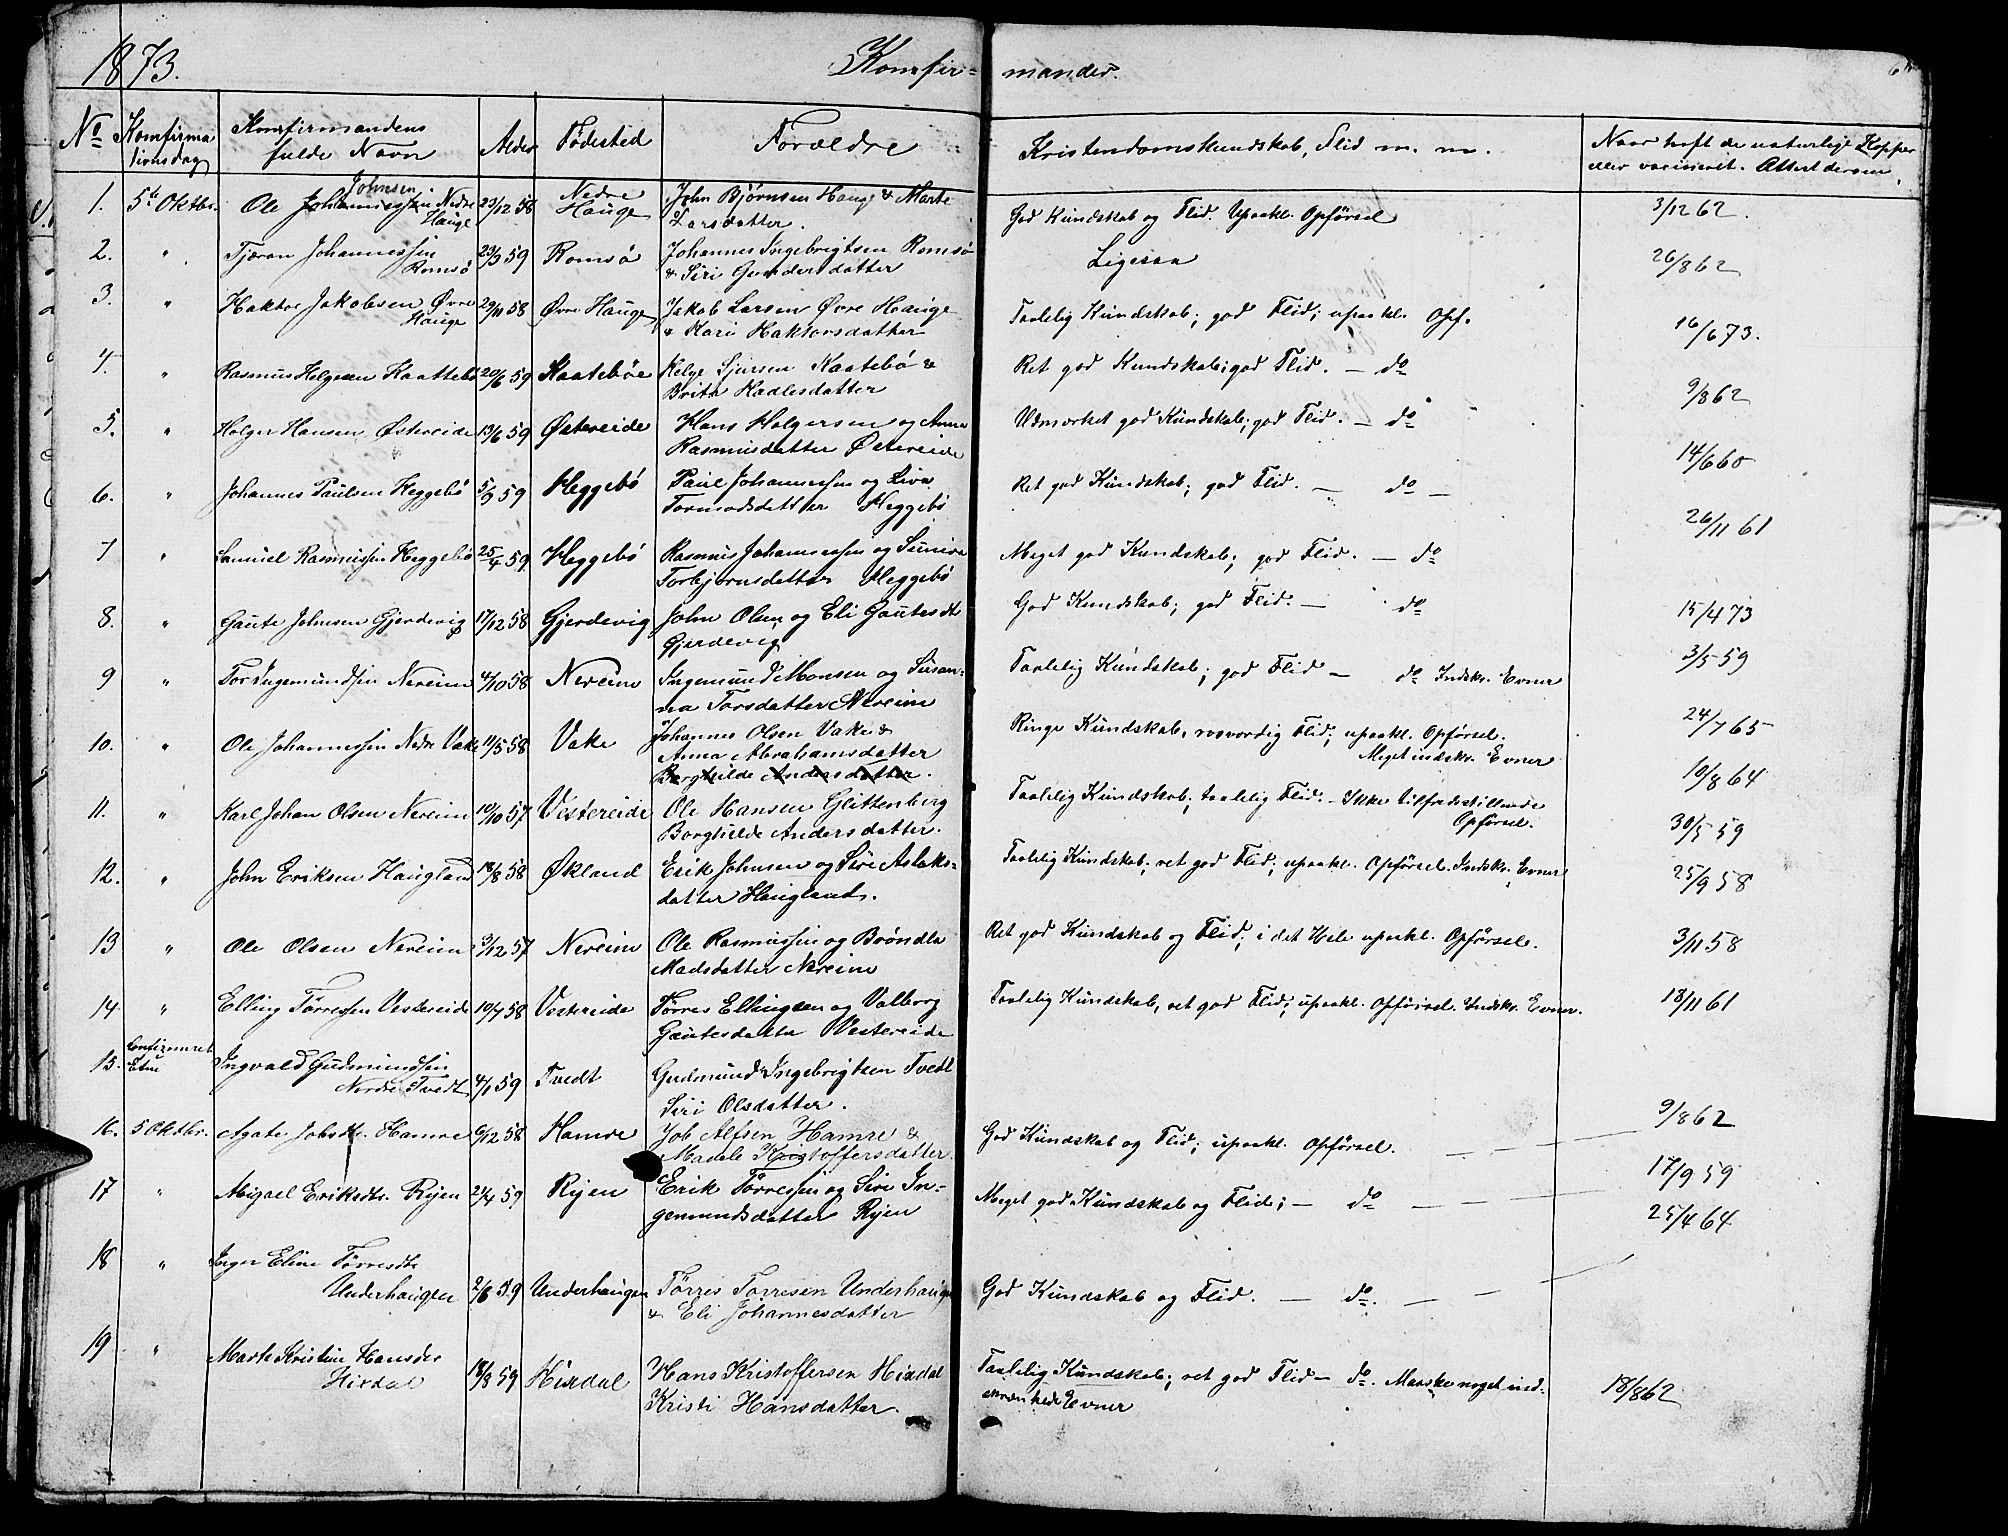 1873.
Konfir=
mander.
No
Konfirma
tionsdag
Konfirmandens
fulde Navn
Alder
Fødested
Forældre
Kristendomskundskab, Flid m. m.
Naar haft de naturlige Kopper
eller vaccineret. Attest derom.
1. 5te Oktbr. Ole Johannessen Johnsen Nedre 23/12 58 Nedre John Bjørnsen Hauge & Marte God Kundskab og Flid. Upaakl. Opförsel 3/12 62.
Hauge Hauge Larsdatter.
2. " Tjeran Johannessen 23/9 59 Romsö Johannes Ingebrigtsen Romsö Ligesaa 26/8 62
Romsö & Siri Gundersdatter
3. " Haktor Jakobsen Øvre 29/11 58 Øvre Hauge Jakob Larsen Øvre Hauge Taalelig Kundskab; god Flid; upaakl. Opf. 16/6 73.
Hauge & Kari Haktorsdatter
4. " Rasmus Helgesen Kaattebö 20/6 59 Kaatebøe Helge Sjursen Kaatebö & Ret god Kundskab; god Flid. — do 9/8 62
Brita Hadlesdatter
5. " Holger Hansen Østereide 13/6 59 Østereide Hans Holgersen og Anna Udmærket god Kundskab; god Flid. — do 14/6 60
Rasmusdatter Østereide
6. " Johannes Paulsen Heggebö 5/9 59 Heggebö Paul Johannessen og Liva Ret god Kundskab; god Flid. — do — 26/11 61
Tormodsdatter Heggebö
7 " Samuel Rasmussen Heggebö 25/4 59 Heggebö Rasmus Johannessen og Suniva Meget god Kundskab; god Flid. — do
Torbjörnsdatter Heggebö
8. " Gaute Johnsen Gjerdevig 17/12 58 Gjerdevig John Olsen og Eli Gautesdtr God Kundskab; god Flid. — do 15/4 73
Gjerdevig
9 " Tor Ingemundsen Nereim 4/10 58 Nereim Ingemund Monsen og Susan= Taalelig Kundskab; god Flid — do Indskr. Evner 3/5 59
na Torsdatter Nereim
10. " Ole Johannessen Nedre Vake 11/5 58 Vake Johannes Olsen Vake & Ringe Kundskab, rosværdig Flid; upaakl. Opförsel. 24/7 65
Anna Abrahamsdatter Meget indskr. Evner
Borghilde Andersdatter.
11. " Karl Johan Olsen Nereim 10/10 57 Vestereide Ole Hansen Glittenberg Taalelig Kundskab; taalelig Flid. — Ikke tilfredsstillende 10/8 64
Borghilde Andersdatter. Opförsel. 30/5 59
12. " John Eriksen Haugland 18/8 58 Økland Erik Johnsen og Siri Aslaks= Taalelig Kundskab; ret god Flid; upaakl. Opförsel. Indskr. Evner 25/9 58
datter Haugland.
13 " Ole Olsen Nereim 3/12 57 Nereim Ole Rasmussen og Bröndla Ret god Kundskab og Flid; i det Hele upaakl. Opförsel. 3/11 58
Madsdatter Nereim
14 " Elling Törressen Vestereide 10/7 58 Vestereide Törres Ellingsen og Valborg Taalelig Kundskab, ret god Flid; upaakl. Opförsel. Indskr. Evner. 18/11 61
Gautesdatter Vestereide
15. Confirmeret Ingvald Gudmundsen
Etne Nordre Tvedt 4/1 59 Tvedt Gudmund Ingebrigtsen Tvedt
Siri Olsdatter.
16. 5 Oktbr. Agate Jobsdtr. Hamre 6/12 58 Hamre Job Alfsen Hamre & God Kundskab og Flid; upaakl. Opförsel. — — 9/8 62
Madele Kristoffersdatter.
17 " Migael Eriksdtr. Rijen 2/4 59 Rijen Erik Törresen og Siri In= Meget god Kundskab og Flid; — do — — 17/9 59
gemundsdatter Rijen 25/4 64
18 " Inger Eline Törresdtr
Underhaugen 2/6 59 Underhaugen Törres Torresen Underhaugen God Kundskab og Flid. — do. — —
& Eli Johannesdatter
19 " Marte Kristine Hansdtr
Hirdal 18/8 59 Hirdal Hans Kristoffersen Hirdal Taalelig Kundskab; ret god Flid — do. Maaske noget ind= 18/8 62
Kristi Hansdatter. skrænkede Evner